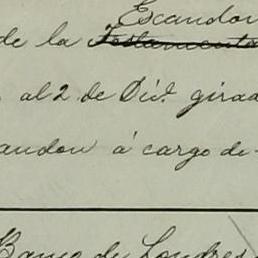 Escandon
de la Testamenta
al 2 de Dic. girad
andon á cargo de
Banco de Londres